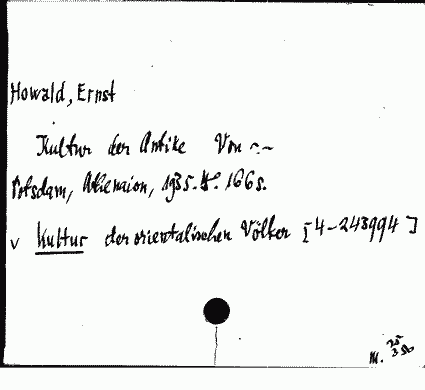 Howald, Ernst
Kultur der Antike Von ~.~
Potsdam, Athenaion, 1935. 4°. 166 s.
v Kultur der orientalischen Völker [4-243994]
M. 25
350